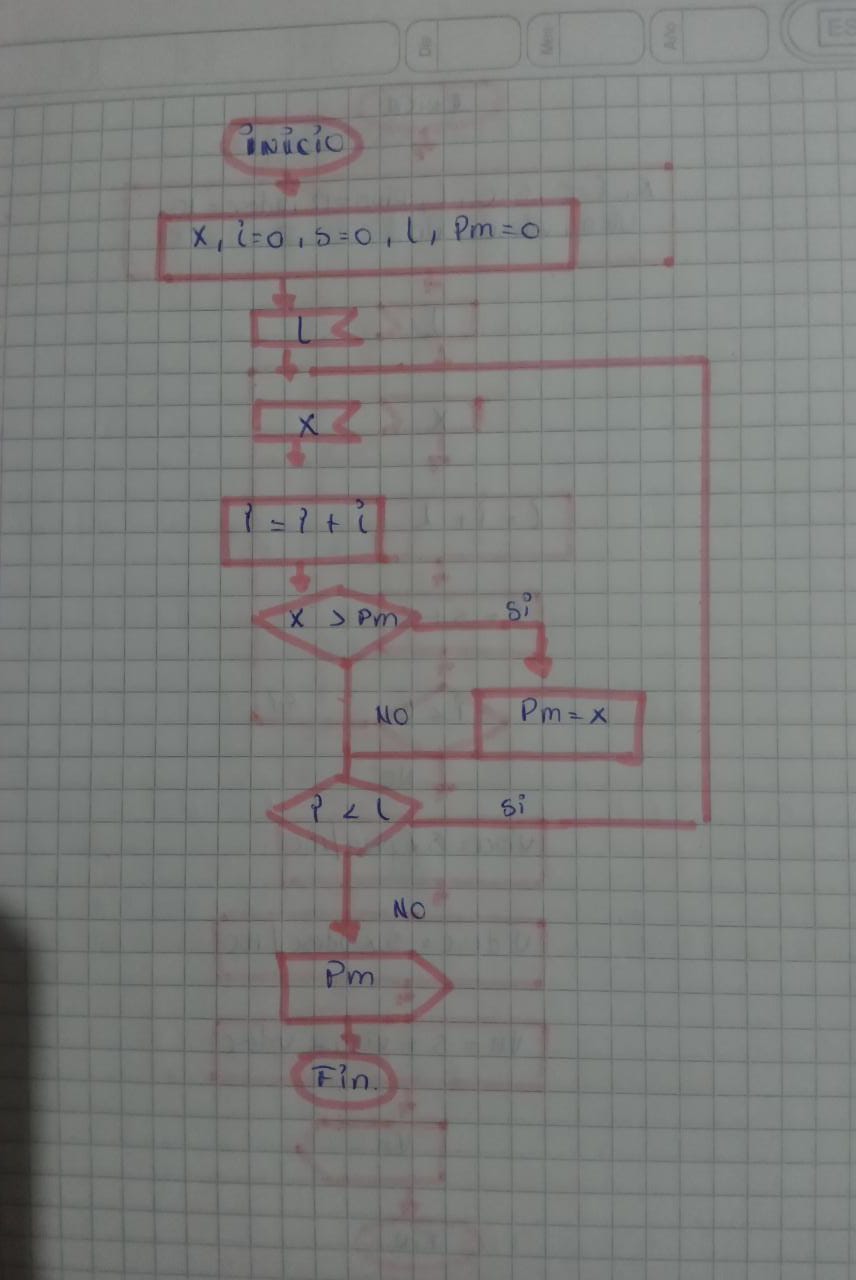 Dia
Mes
Año
inicio
x, i=0, s=0, l, Pm=0
l
x
i = i + i
x > Pm
si
NO
Pm = x
i < l
si
NO
Pm
Fin.